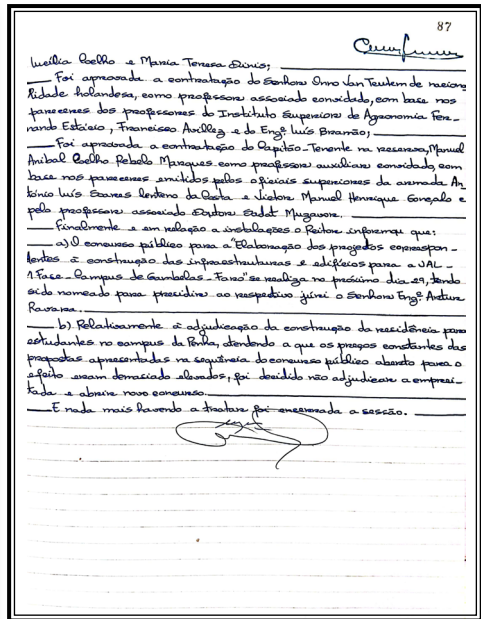 87
Lucília Coelho e Maria Teresa Dinis;
Foi aprovada a contratação do Senhor Onno Van Teutem de naciona
lidade holandesa, como professor associado convidado, com base nos
pareceres dos professores do Instituto Superior de Agronomia Fer-
nando Estácio, Francisco Avillez e do Engº Luís Bramão;
Foi aprovada a contratação do Capitão-Tenente na reserva, Manuel
Anibal Coelho Rebelo Marques como professor auxiliar convidado, com
base nos pareceres emitidos pelos oficiais superiores da armada An
tónio Luís Soares da Costa e Victor Manuel Henrique Gonçalo e
pelo professor associado Doutor Sadat Muzavor.
Finalmente e em relação a instalações o Reitor informou que:
a) O concurso público para a "Elaboração dos projectos correspon-
dentes à construção das infraestruturas e edifícios para a UAL -
1.Fase - Campus de Gambelas - Faro" se realiza no próximo dia 29, tendo
sido nomeado para presidir ao respectivo júri o Senhor Engº. Artur
Ravara.
b) Relativamente à adjudicação da construção da residência para
estudantes no campus da Penha, atendendo a que os preços constantes das
propostas apresentadas na sequência do concurso público aberto para o
efeito eram demasiado elevados, foi decidido não adjudicar a emprei-
tada e abrir novo concurso.
E nada mais havendo a tratar foi encerrada a sessão.